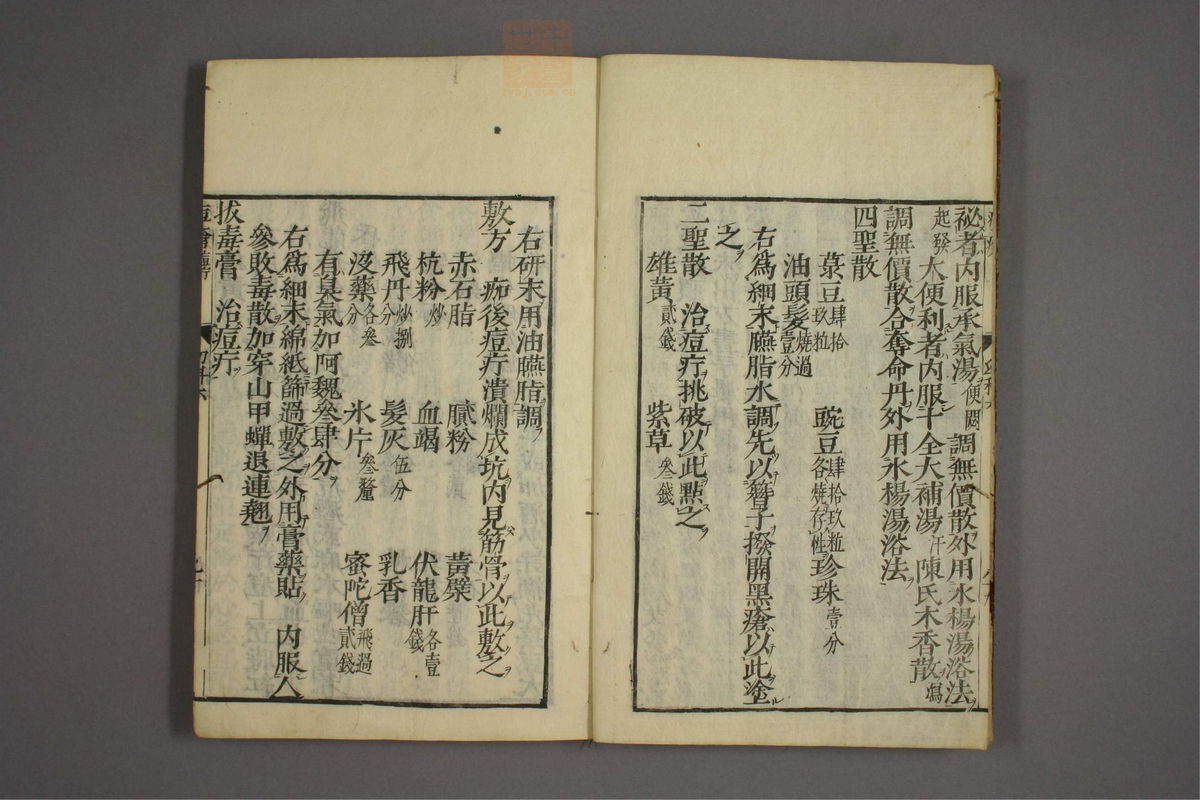 祕者内服承氣湯便閟調無價散外用水楊湯浴法
起發大便利者内服十全大補湯汗陳氏木香散瀉
調無價散合奪命丹外用水楊湯浴法
四聖散
菉豆肆拾玖粒 豌豆肆拾玖粒各燒存性 珍珠壹分
油頭髮燒過壹分
右為細末臙脂水調先以簪子撥開黑瘡以此塗
之
二聖散 治痘疔挑破以此點之
雄黃貳錢 紫草叁錢
右研末用油臙脂調
敷方 痂後痘疔潰爛成坑内見筋骨以此敷之
赤石脂 膩粉 黃蘗
杭粉炒 血竭 伏龍肝各壹錢
飛丹炒捌分 髮灰伍分 乳香
沒藥各叁分 氷片叁釐 蜜陀僧飛過貳錢
有臭氣加阿魏叁肆分
右為細末綿紙篩過敷之外用膏藥貼 内服人
參敗毒散加穿山甲蟬退連翹
拔毒膏 治痘疔